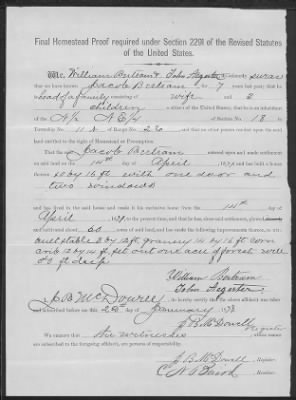 Final Homestead Proof required under Section 2291 of the Revised Statutes
of the United States.
We, William Bertram & John Aegerter do solemnly swear
that we have known Jacob for 7 years last past; that he is
head of a family consisting of wife and 8
children a citizen of the United States; that he is an inhabitant
of the N/2 N E/4 of Section No. 18 in
Township No. 11 S of Range No. 23 and that no other person resided upon the said
land entitled to the right of Homestead or Pre-emption.
That the said Jacob entered upon and made settlement
on said land on the 14th day of April 187 and has built a house
thereon 10 by 16 ft with one door and
two windows
and has lived in the said house and made it his exclusive home from the 14th day of
April 187 to the present time, and that he has, since said settlement, plowed,
and cultivated about 60 acres of said land, and has made the following improvements thereon, to wit:
stable 12 ft granary 14 by 16 ft corn
crib 12 by 14 ft, set out one acre of forest well
ft deep
William Bertram
John Aegerter
I, J B McDowell, do hereby certify that the above affidavit was taken
and subscribed before me this day of January
J B McDowell
Register
We certify that the witnesses whose names
are subscribed to the foregoing affidavit, are persons of respectability.
J B McDowell, Register.
C N, Receiver.